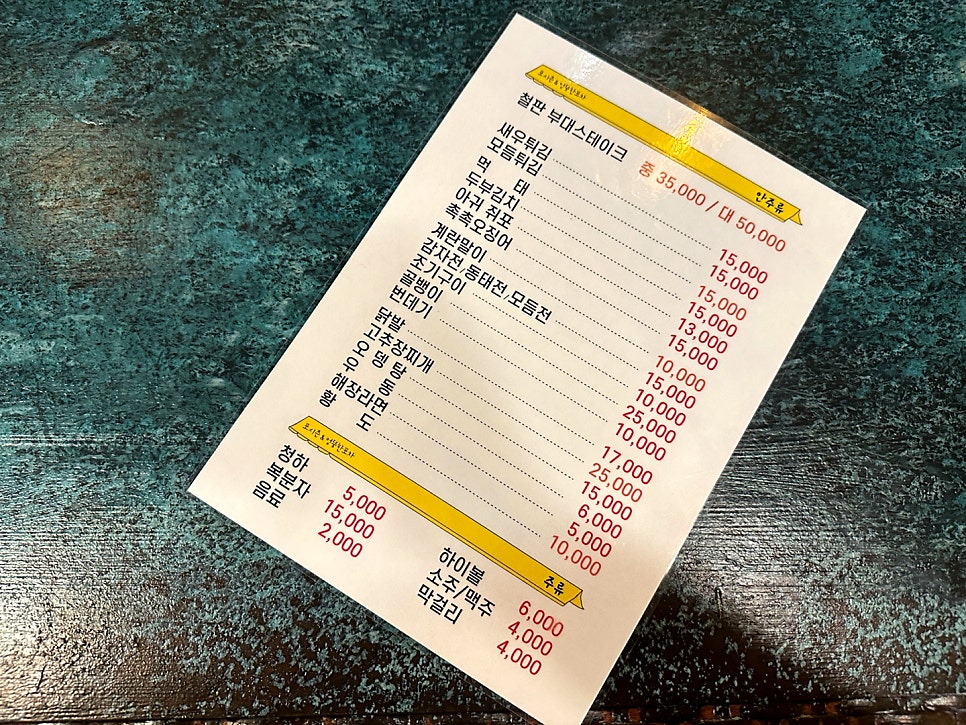 안주류
철판 부대스테이크 중 35,000 / 대 50,000
새우튀김 15,000
모듬튀김 15,000
먹 태 15,000
두부김치 15,000
아귀 쥐포 13,000
촉촉오징어 15,000
계란말이 10,000
감자전,동태전,모듬전 15,000
조기구이 10,000
골뱅이 25,000
번데기 10,000
닭발 17,000
고추장찌개 25,000
오 뎅 탕 15,000
우 동 6,000
해장라면 5,000
황 도 10,000
주류
청하 5,000 하이볼 6,000
복분자 15,000 소주/맥주 4,000
음료 2,000 막걸리 4,000